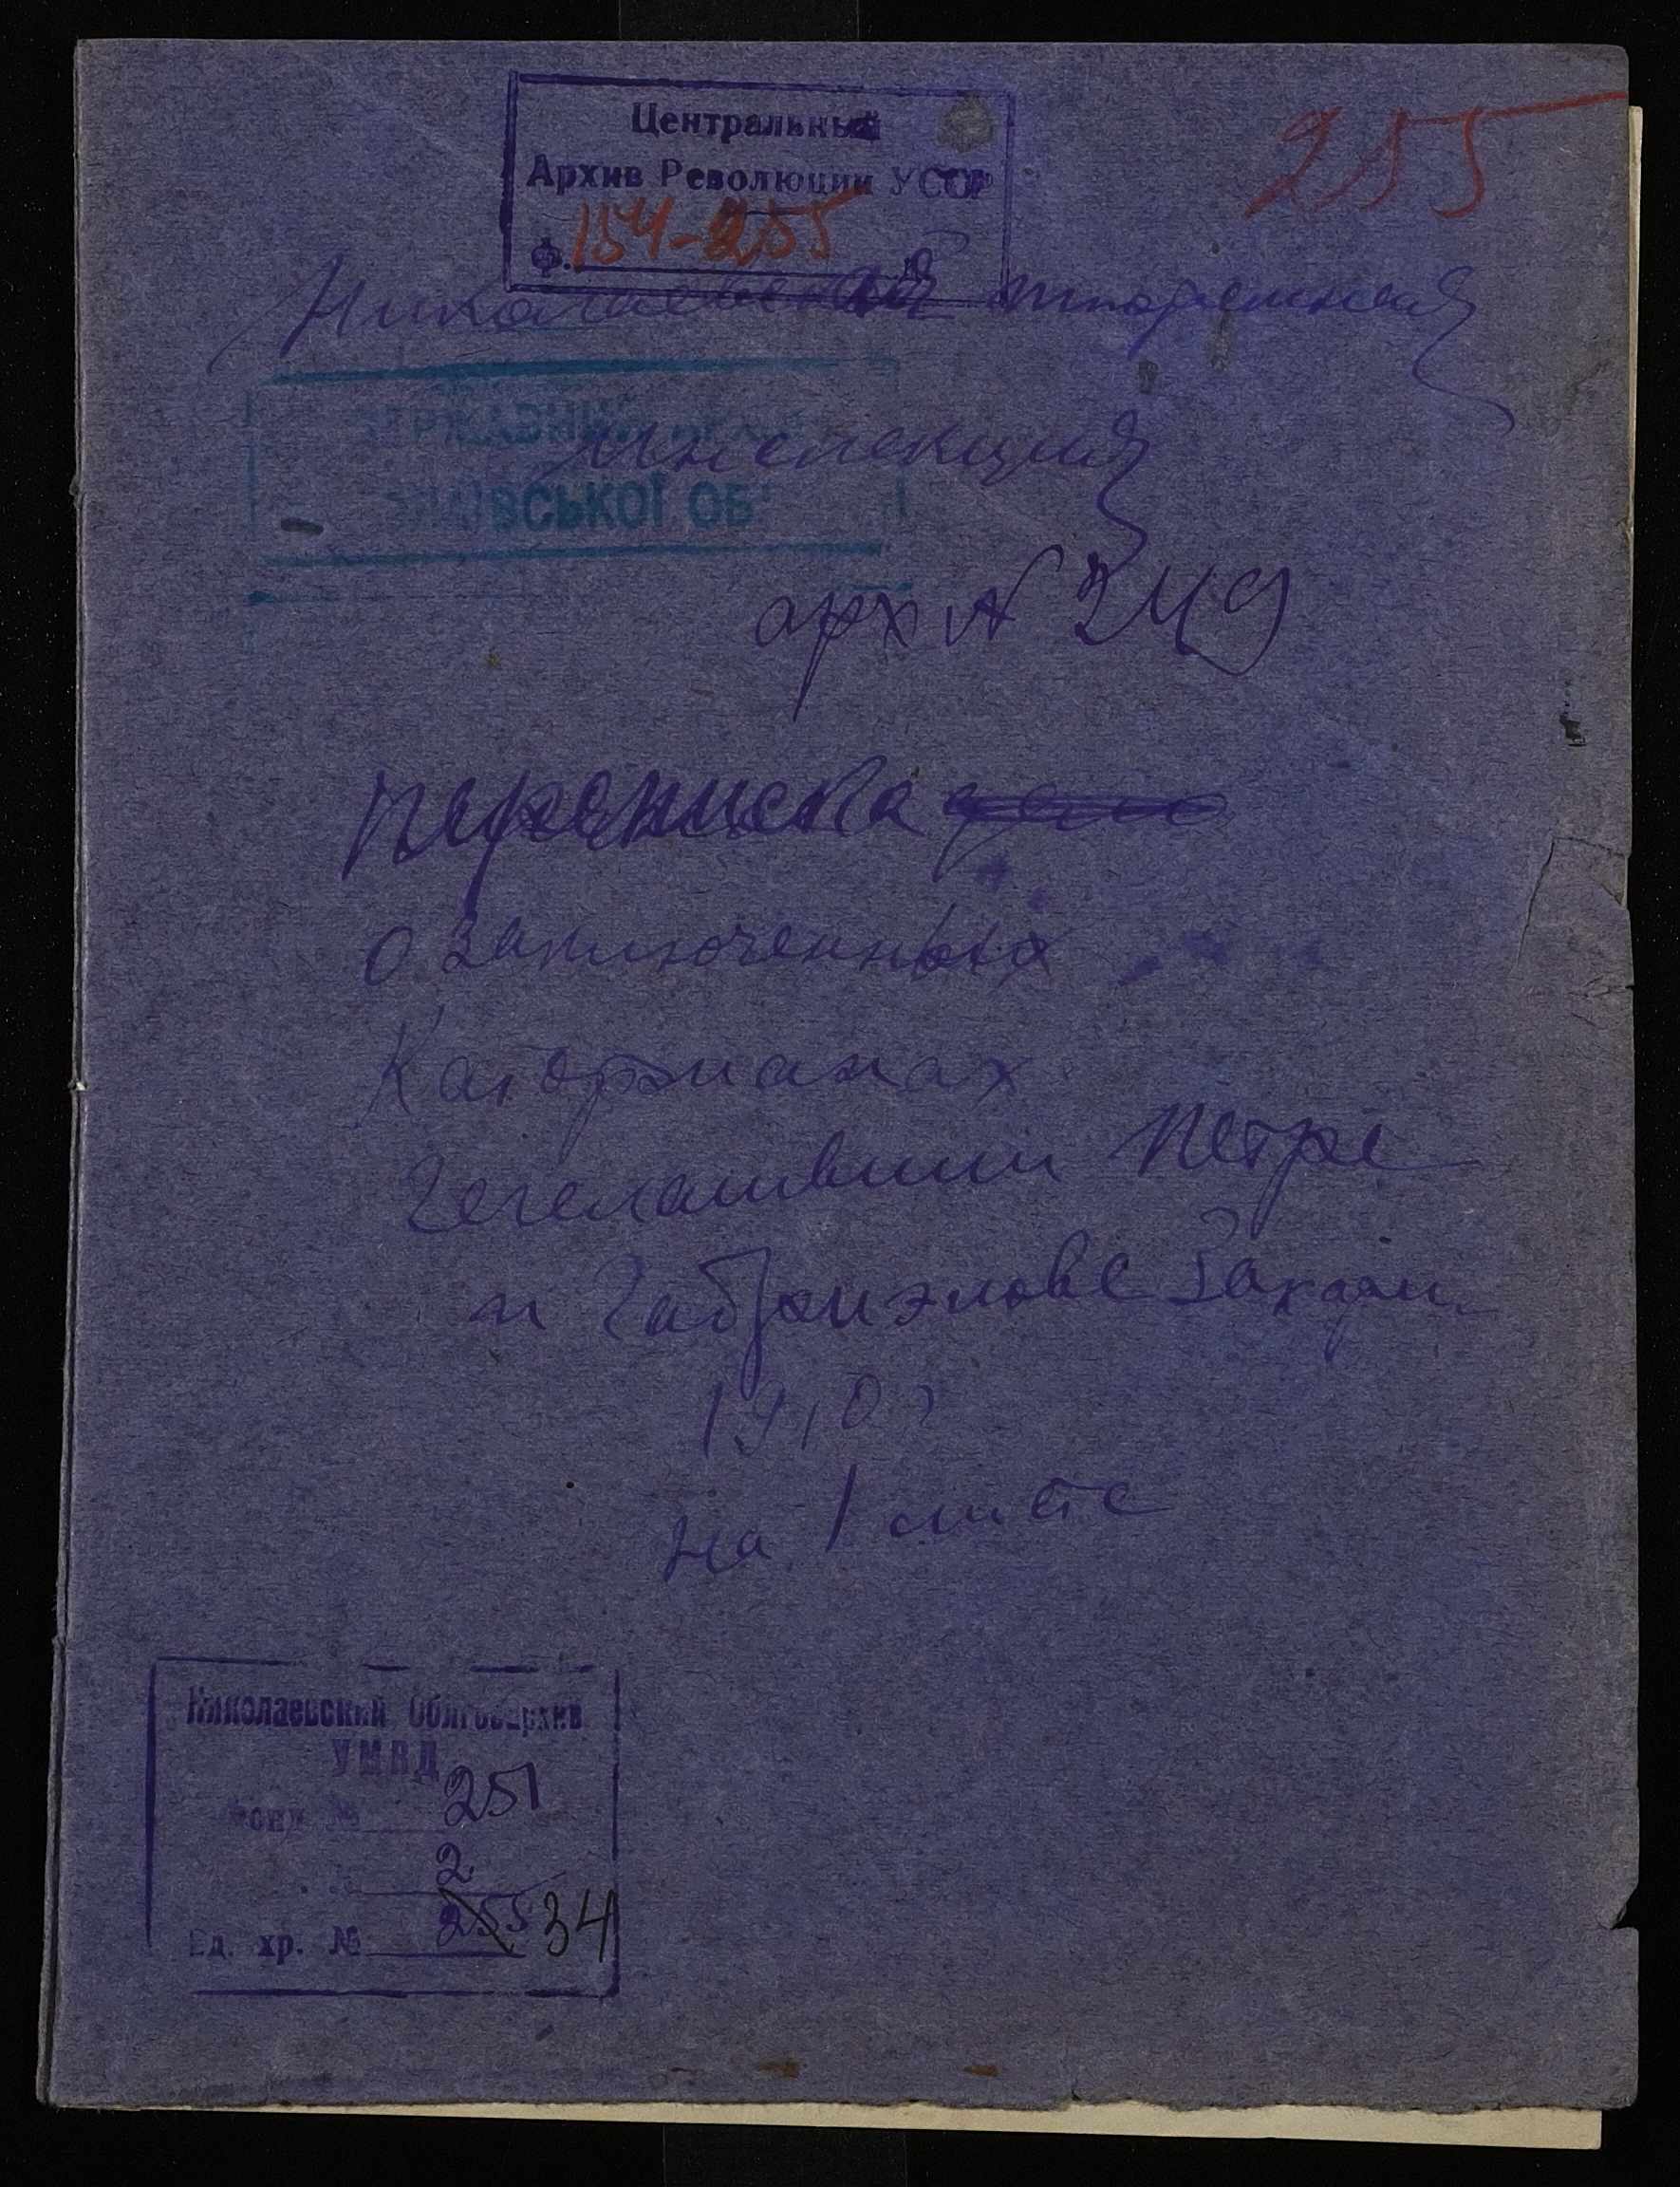 Центральный
255
Архив Революции УССР
Ф. 154-255
Николаевская тюремная
инспекция
арх № 3149
переписка дело
о заключенных
Каторжанах
Гегелашвили Петре
и Габриэлове Захари
1910 г
на 1 листе
Николаевский Облгосархив
УМВД
Фонд № 251
2
Ед. хр. № 255 34